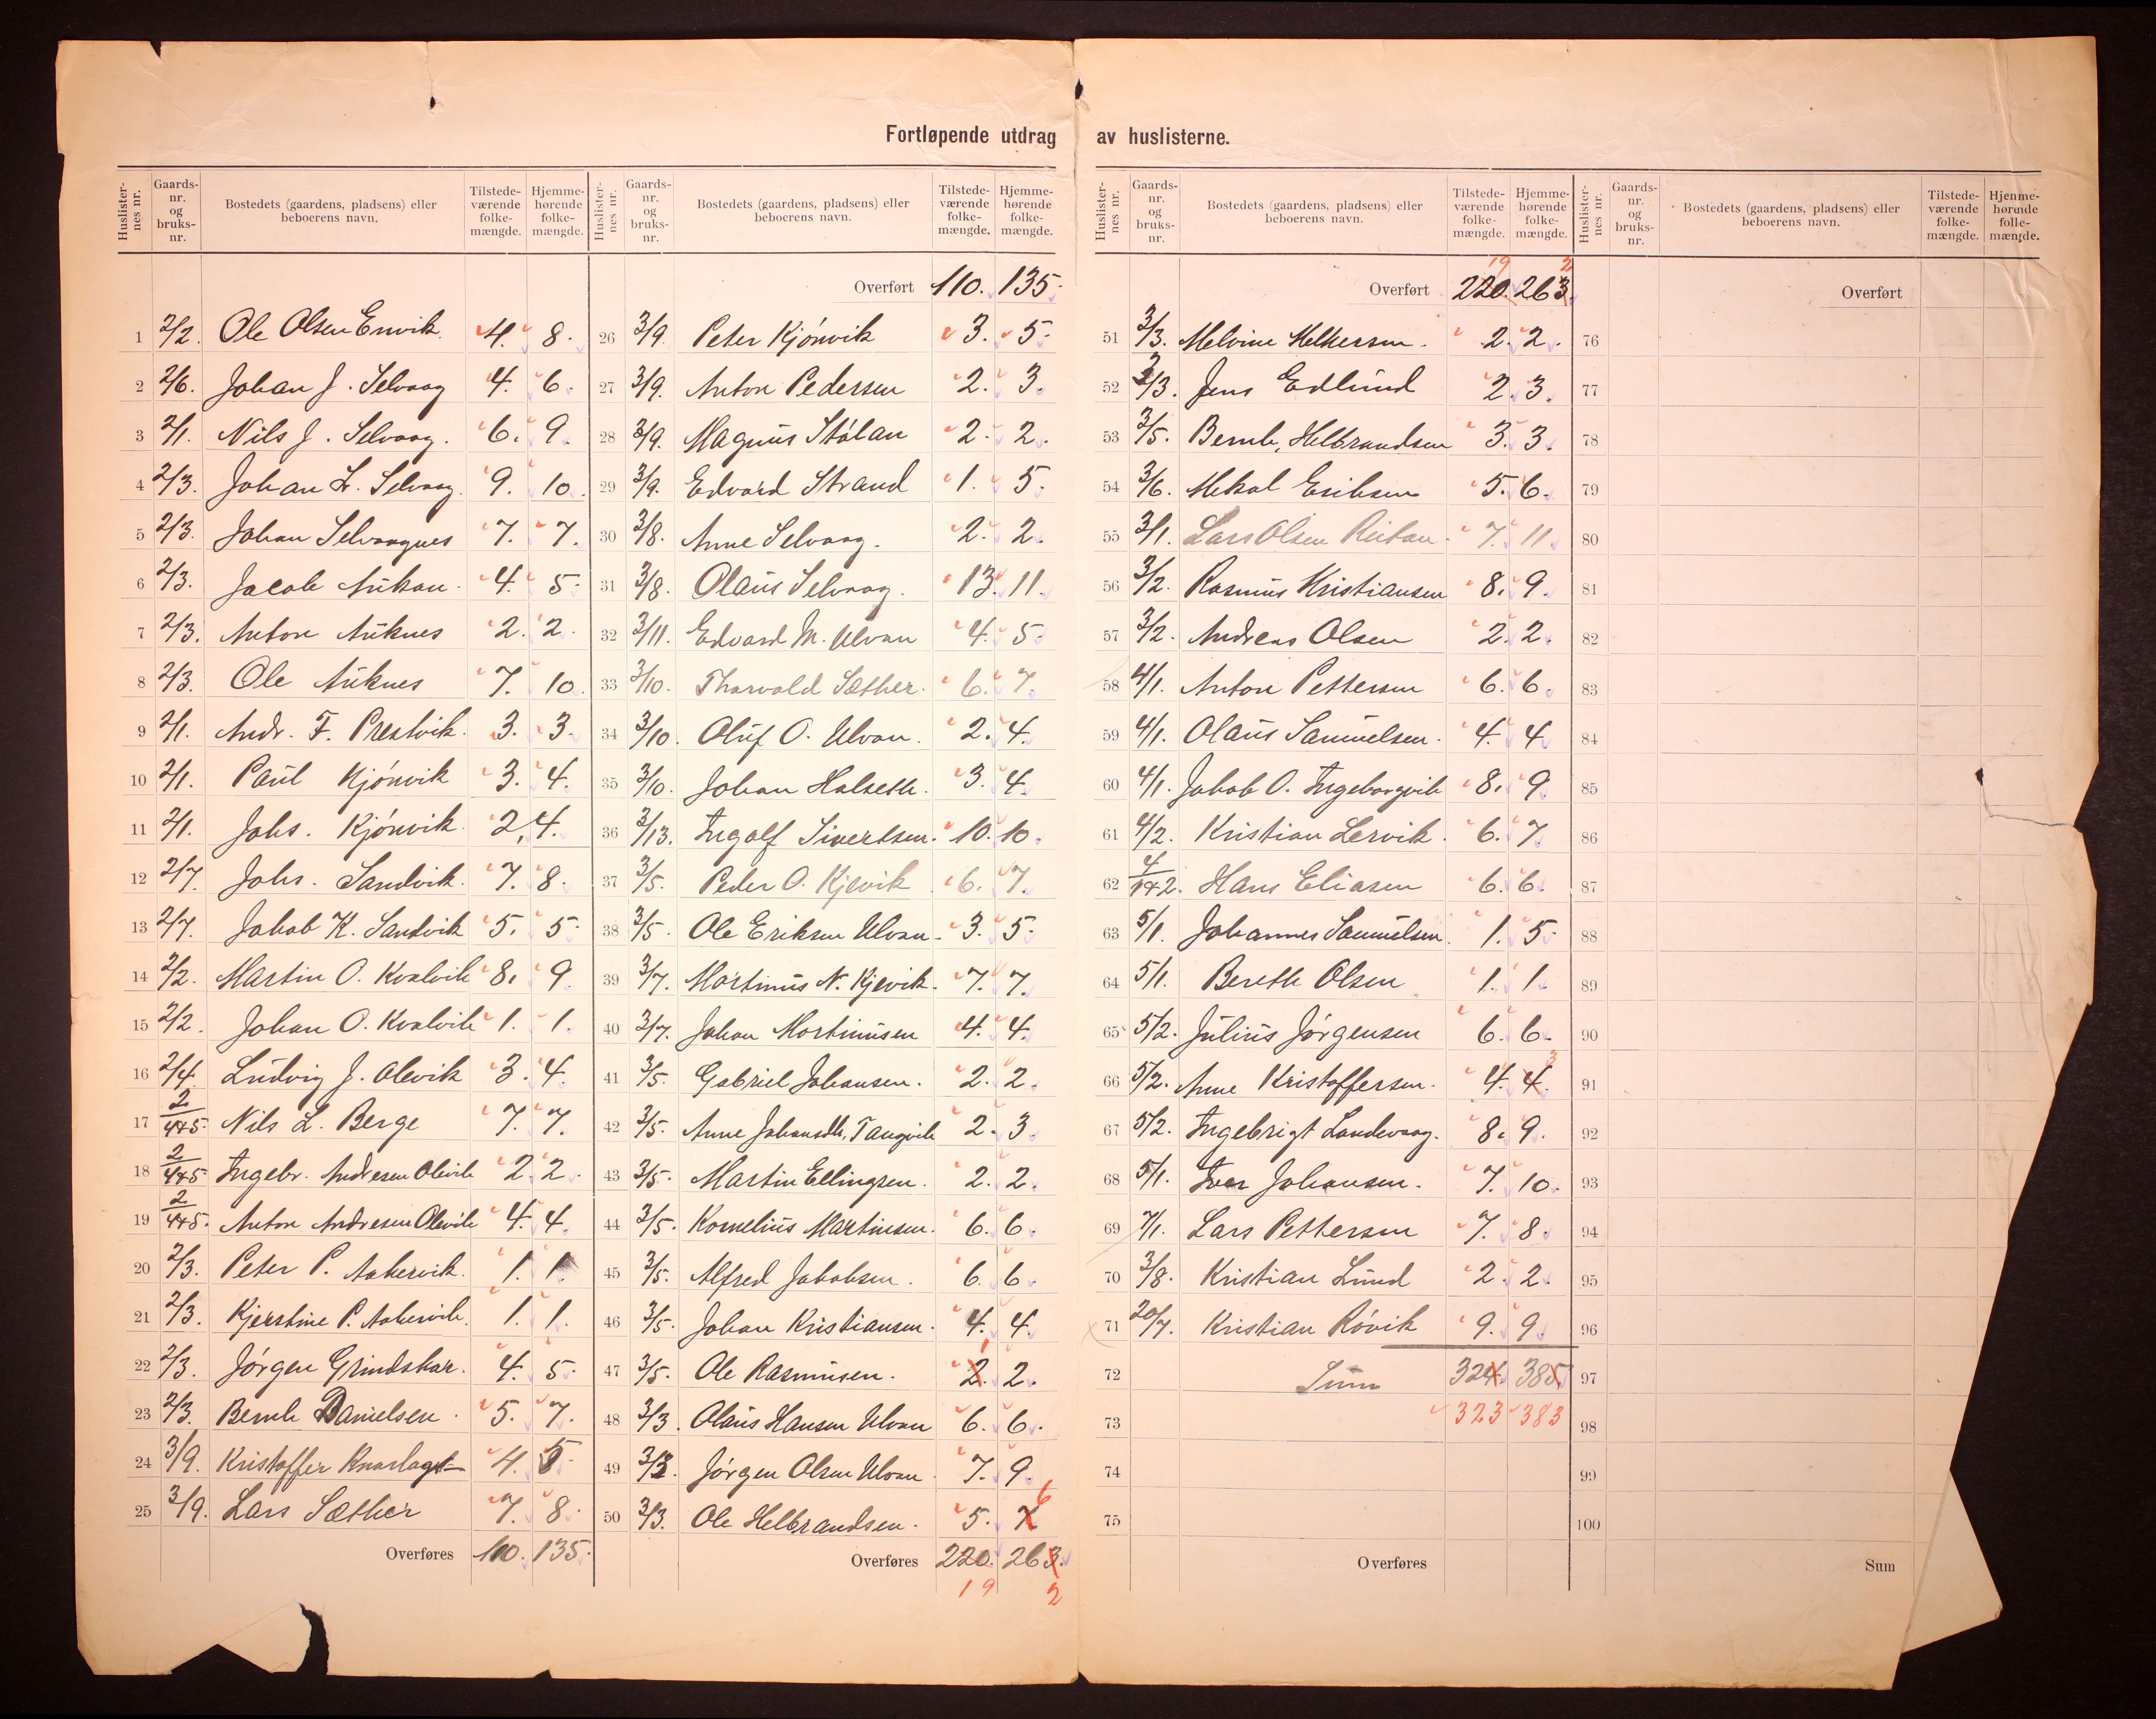 Fortløpende utdrag av huslisterne.
Huslisternes nr. Gaardsnr. og bruksnr. Bostedets (gaardens, pladsens) eller beboerens navn. Tilstedeværende folkemængde. Hjemmehørende folkemængde.
1 2/2. Ole Olsen Envik. 4. 8.
2 2/6. Johan J. Selvaag 4. 6.
3 2/1. Nils J. Selvaag. 6. 9.
4 2/3. Johan L. Selvaag. 9. 10.
5 2/3. Johan Selvaagnes 7. 7.
6 2/3. Jacob Aukan. 4. 5.
7 2/3. Anton Auknes 2. 2.
8 2/3. Ole Auknes 7. 10.
9 2/1. Andr. F. Prestvik. 3. 3.
10 2/1. Paul Kjönvik 3. 4.
11 2/1. Johs. Kjönvik. 2. 4.
12 2/7. Johs. Sandvik. 7. 8.
13 2/7. Jakob K. Sandvik 5. 5.
14 2/2. Martin O. Kvalvik 8. 9.
15 2/2. Johan O. Kvalvik 1. 1.
16 2/4. Ludvig J. Olevik 3. 4.
17 2/4+5. Nils L. Berge 7. 7.
18 2/4+5 Ingebr. Andresen Olevik 2. 2.
19 2/4+5. Anton Andresen Olevik 4. 4.
20 2/3. Peter P. Aakervik. 1. 1.
21 2/3. Kjerstine P. Aakervik. 1. 1.
22 2/3. Jörgen Grindskar. 4. 5.
23 2/3. Bernh Danielsen. 5. 7.
24 3/9. Kristoffer Knarlagst 4. 5.
25 3/9. Lars Sæther 7. 8.
Overføres 110. 135.
Huslisternes nr. Gaardsnr. og bruksnr. Bostedets (gaardens, pladsens) eller beboerens navn. Tilstedeværende folkemængde. Hjemmehørende folkemængde.
Overført 110. 135.
26 3/9. Peter Kjönvik 3. 5.
27 3/9. Anton Pedersen 2. 3.
28 3/9. Magnus Stólan 2. 2.
29 3/9. Edvard Strand 1. 5.
30 3/8. Anne Selvaag. 2. 2.
31 3/8. Olaus Selvaag. 13. 11.
32 3/11. Edvard M. Ulvan 4. 5.
33 3/10. Thorvald Sæther. 6. 7.
34 3/10. Oluf O. Ulvan. 2. 4.
35 3/10. Johan Halseth. 3. 4.
36 3/13. Ingolf Sivertsen. 10. 10.
37 3/5. Peder O. Kjevik 6. 7.
38 3/5. Ole Eriksen Ulvan. 3. 5.
39 3/7. Martinus N. Kjevik. 7. 7.
40 3/7. Johan Martinusen 4. 4.
41 3/5. Gabriel Johansen. 2. 2.
42 3/5. Anne Johansdtr. Tangvik 2. 3.
43 3/5. Martin Ellingsen. 2. 2.
44 3/5. Kornelius Martinsen. 6. 6.
45 3/5. Alfred Jakobsen. 6. 6.
46 3/5. Johan Kristiansen. 4. 4.
47 3/5. Ole Rasmusen. 2. 1 2.
48 3/3. Olaus Hansen Ulvan 6. 6.
49 3/3. Jörgen Olsen Ulvan 7. 9.
50 3/3. Ole Helbrandsen. 5. 7 6
Overføres 220. 263.
19 2
Huslisternes nr. Gaardsnr. og bruksnr. Bostedets (gaardens, pladsens) eller beboerens navn. Tilstedeværende folkemængde. Hjemmehørende folkemængde.
19 2
Overført 220. 263.
51 3/3. Melvine Melkersen. 2. 2.
52 3/3. Jens Edlund 2. 3.
53 3/5. Bernh. Helbrandsen 3. 3.
54 3/6. Mekal Eriksen 5. 6.
55 3/1. Lars Olsen Reitan. 7. 11.
56 3/2. Rasmus Kristiansen 8. 9.
57 3/2. Andreas Olsen 2. 2.
58 4/1. Anton Pettersen 6. 6.
59 4/1. Olaus Samuelsen. 4. 4.
60 4/1. Jakob O. Ingeborgvik 8. 9.
61 4/2. Kristian Lervik. 6. 7.
62 4/1+2. Hans Eliasen 6. 6.
63 5/1. Johannes Samuelsen. 1. 5.
64 5/1. Bereth Olsen 1. 1.
65 5/2. Julius Jörgensen 6. 6.
66 5/2. Anne Kristoffersen. 4. 4. 3
67 5/2. Ingebrigt Landevaag. 8. 9.
68 5/1. Iver Johansen. 7. 10.
69 7/1. Lars Pettersen 7. 8.
70 3/8. Kristian Lund 2. 2.
71 20/7. Kristian Róvik 9. 9.
72 Sum 324. 385.
73 323 383
74
75
Overføres
Huslisternes nr. Gaardsnr. og bruksnr. Bostedets (gaardens, pladsens) eller beboerens navn. Tilstedeværende folkemængde. Hjemmehørende folkemængde.
Overført
76
77
78
79
80
81
82
83
84
85
86
87
88
89
90
91
92
93
94
95
96
97
98
99
100
Sum